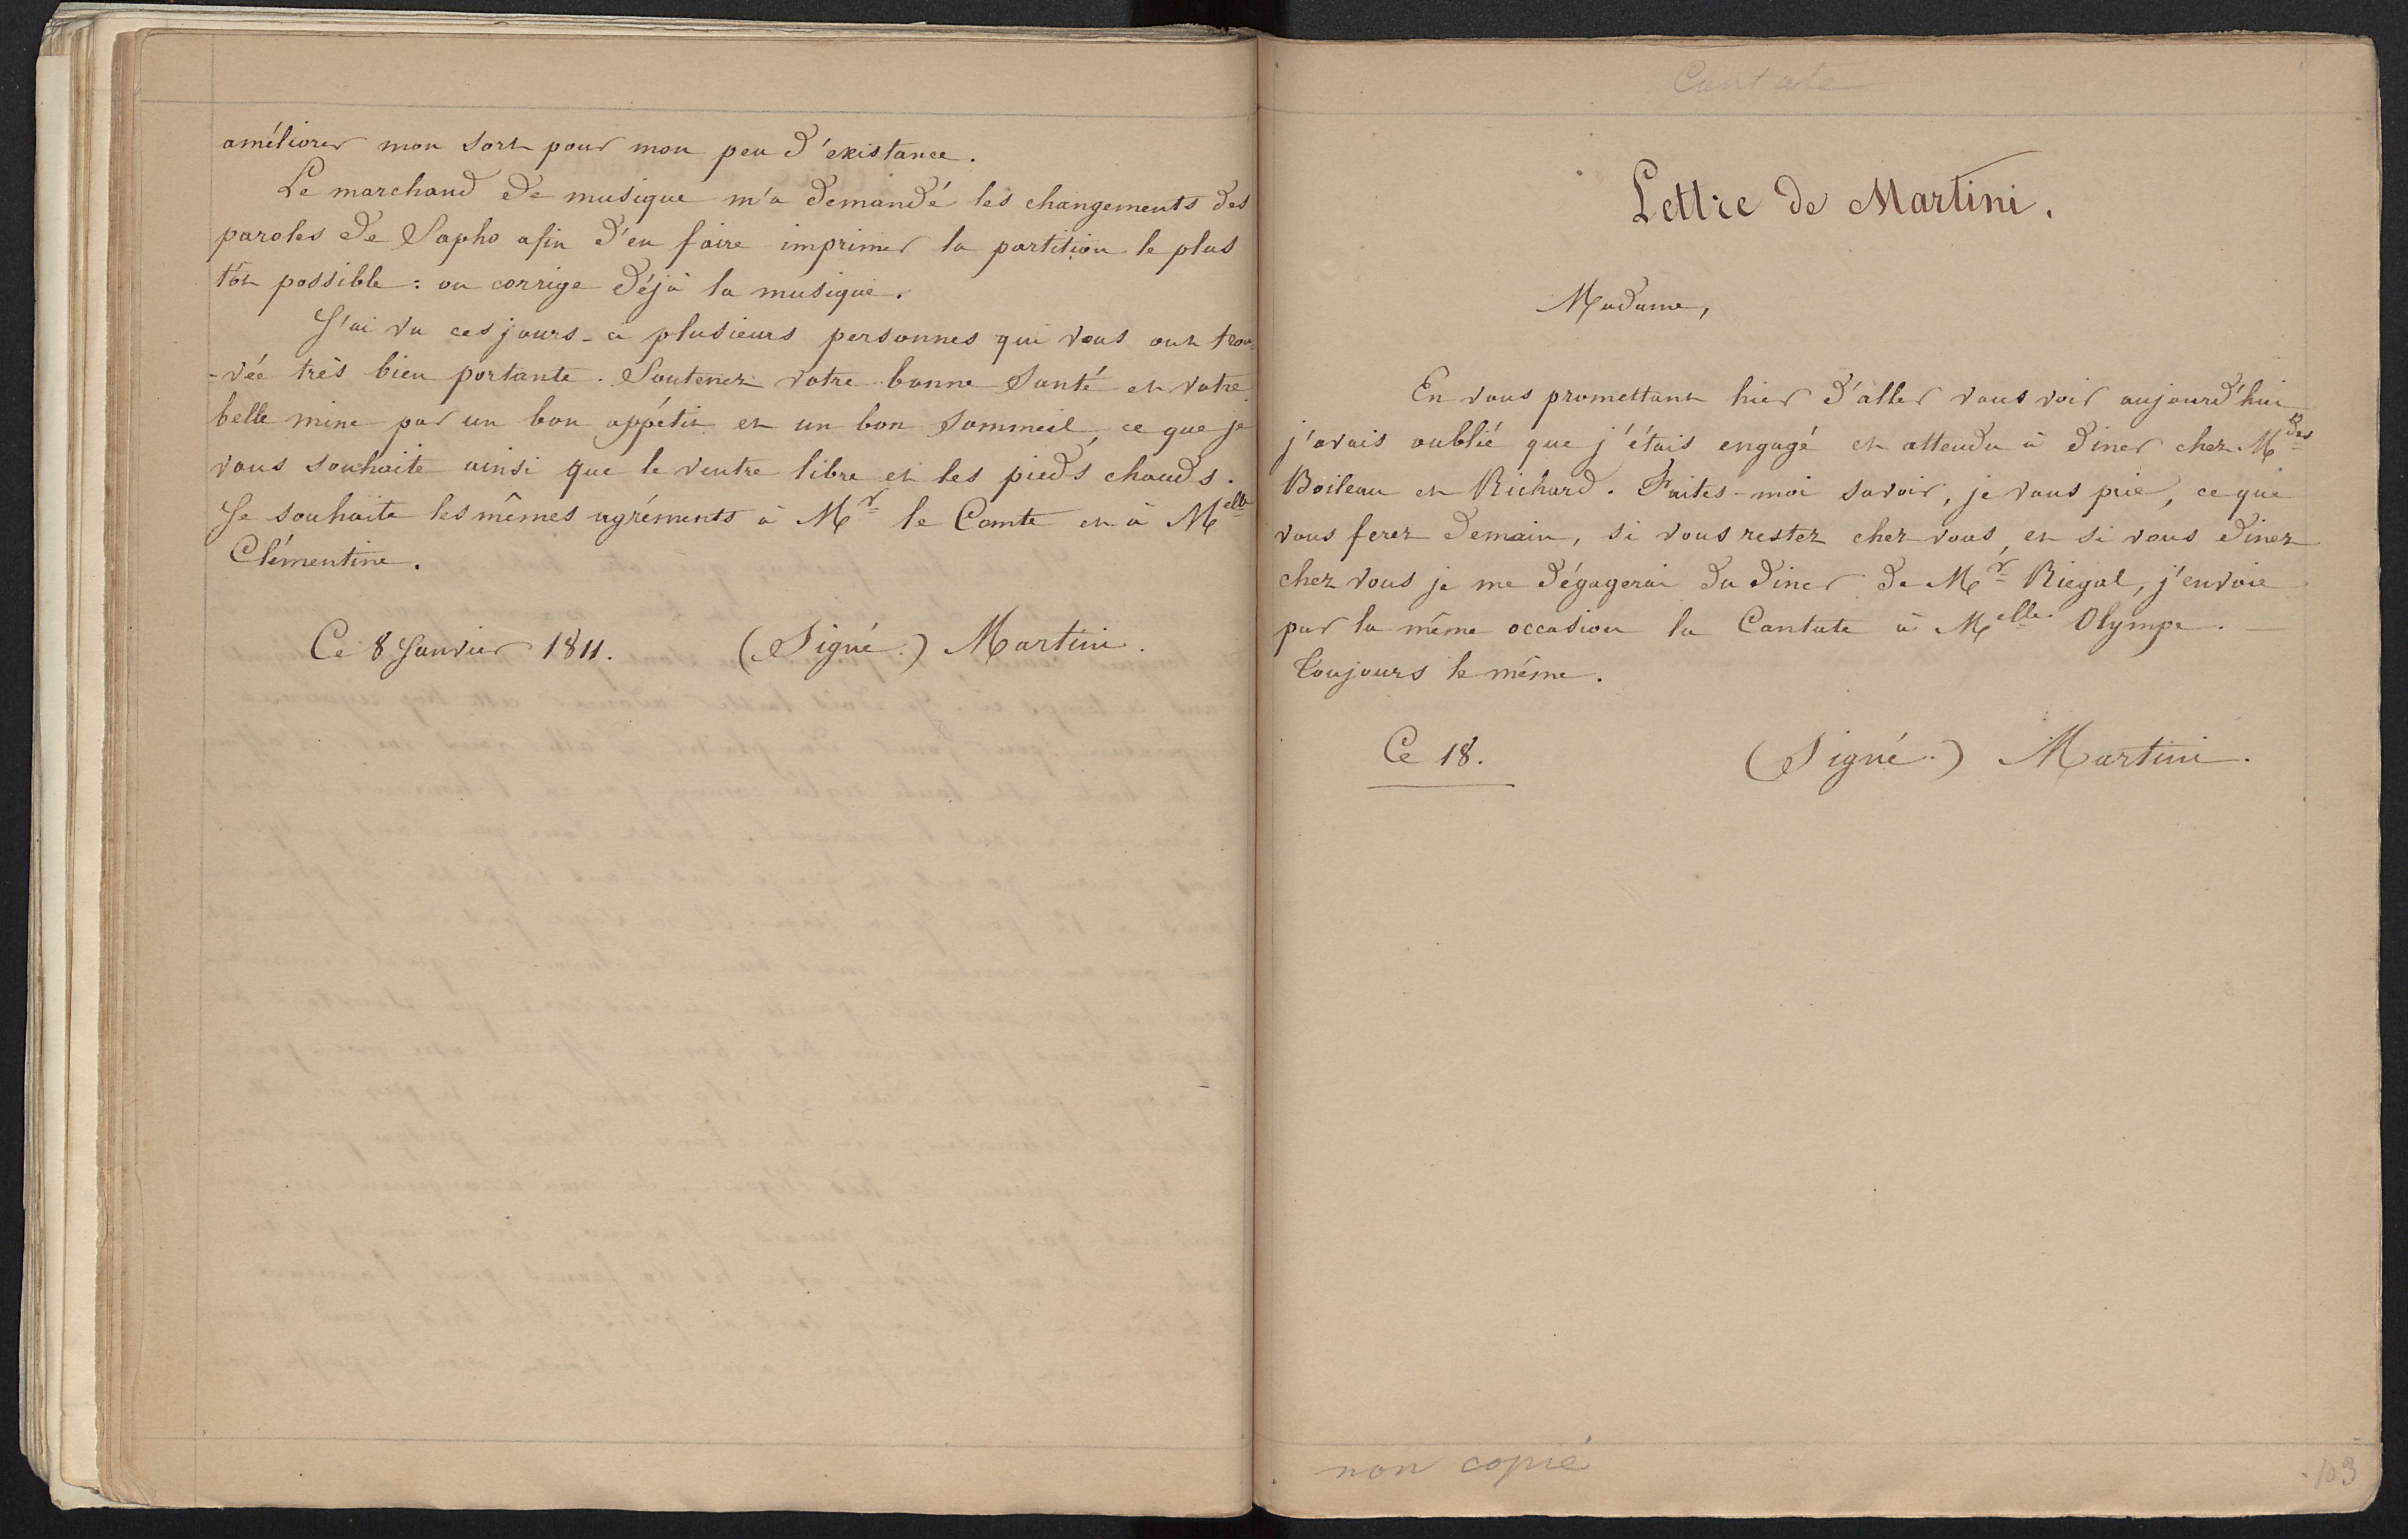 améliorer mon sort pour mon peu d'existance.
Le marchand de musique m'a demandé les changements des
paroles de Sapho afin d'en faire imprimer la partition le plus
tôt possible : on corrige déjà la musique.
J'ai vu ces jours-ci plusieurs personnes qui vous ont trou-
-vée très bien portante. Soutenez votre bonne santé et votre
belle mine par un bon appétit et un bon sommeil, ce que je
vous souhaite ainsi que le ventre libre et les pieds chauds.
Je souhaite les mêmes agréments à Mr le Comte et à Melle
Clémentine.
Ce 8 Janvier 1811. (Signé.) Martini.
Cantate
Lettre de Martini.
Madame,
En vous promettant hier d'aller vous voir aujourd'hui
j'avais oublié que j'étais engagé et attendu à diner chez Mdes
Boileau et Richard. Faites-moi savoir, je vous prie, ce que
vous ferez demain, si vous restez chez vous, et si vous dinez
chez vous je me dégagerai du diner de Mr Riegal, j'envoie
par la même occasion la Cantate à Melle Olympe. —
Toujours le même.
Ce 18. (Signé.) Martini.
non copié
103